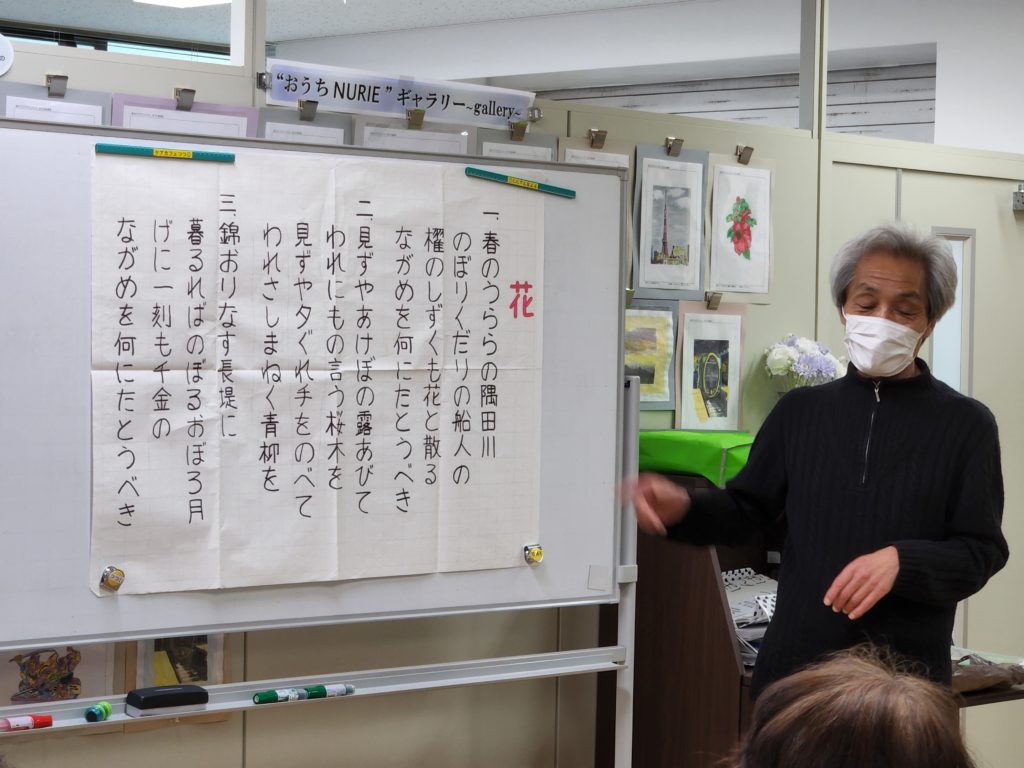 "おうち NURIE" ギャラリー~gallery~
花
一 春のうららの隅田川
のぼりくだりの船人の
櫂のしずくも花と散る
ながめを何にたとうべき
二 見ずやあけぼの露あびて
われにもの言う桜木を
見ずや夕ぐれ手をのべて
われさしまねく青柳を
三 錦おりなす長堤に
暮るればのぼるおぼろ月
げに一刻も千金の
ながめを何にたとうべき